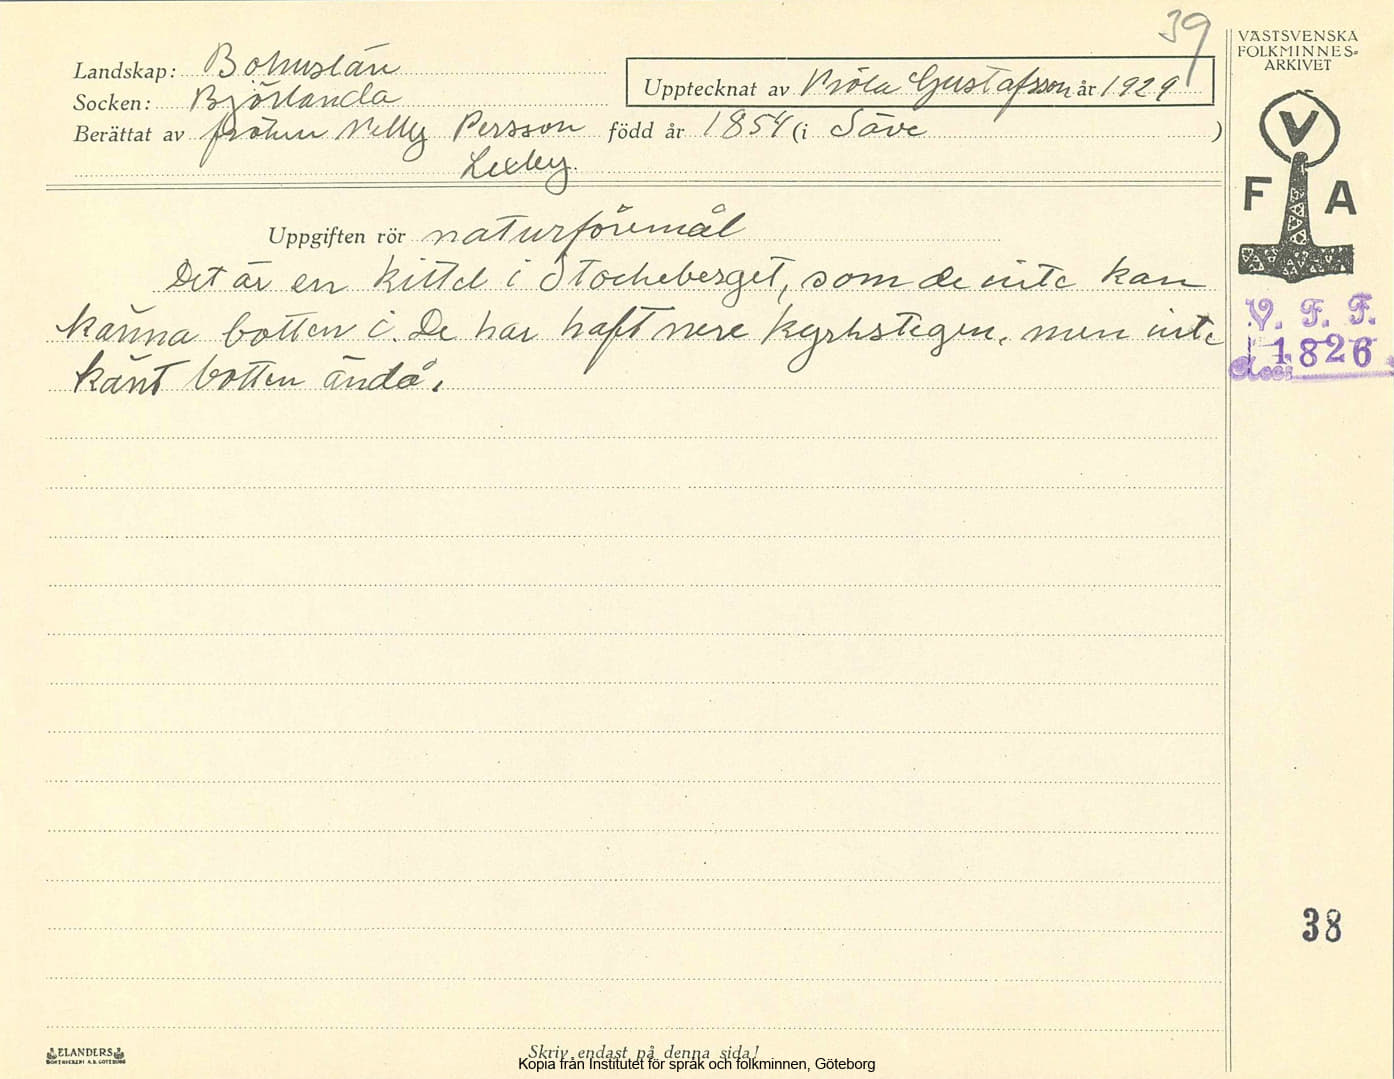 39
VÄSTSVENSKA
FOLKMINNES-
ARKIVET
Landskap: Bohuslän
Socken: Björlanda
Upptecknat av Viola Gustafsson år 1929
Berättat av fröken Nelly Persson född år 1854 (i Säve )
Lexby.
V
F A
Uppgiften rör naturföremål
Det är en kittel i Stockeberget, som de inte kan
känna botten i. De har haft nere kyrkstegen, men inte
känt botten ändå.
V. F. F.
1826
Acc:
38
ELANDERS
BOKTRYCKERI A.B. GÖTEBORG
Skriv endast på denna sida!
Kopia från Institutet för språk och folkminnen, Göteborg